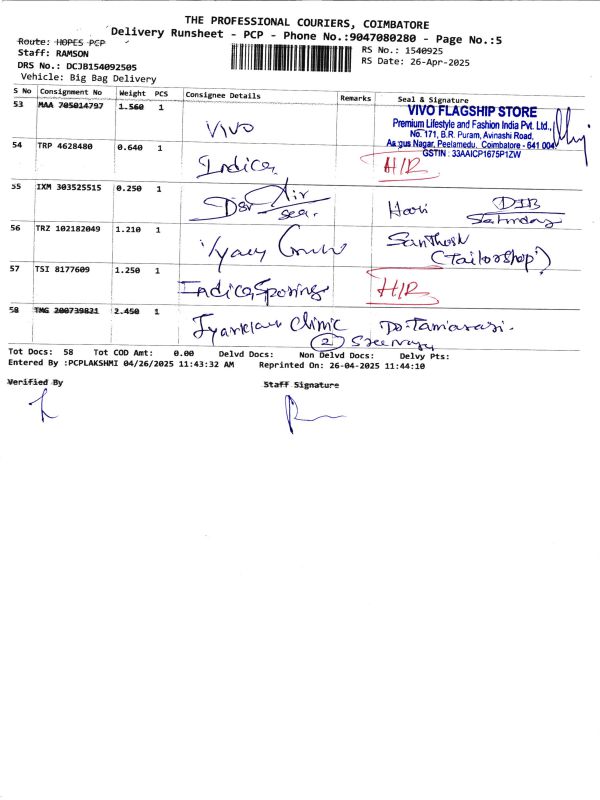 THE PROFESSIONAL COURIERS, COIMBATORE
Delivery Runsheet - PCP - Phone No.:9047080280 - Page No.:5
Route: HOPES PCP
Staff: RAMSON
RS No.: 1540925
DRS No.: DCJB154092505
RS Date: 26-Apr-2025
Vehicle: Big Bag Delivery
S No Consignment No Weight PCS Consignee Details Remarks Seal & Signature
53 MAA 705014797 1.560 1 VIVO
VIVO FLAGSHIP STORE
Premium Lifestyle and Fashion India Pvt. Ltd.,
No. 171, B.R. Puram, Avinashi Road,
Nagar, Peelamedu, Coimbatore - 641 004
GSTIN : 33AAICP1675P1ZW
54 TRP 4628480 0.640 1 Indica H/R
55 IXM 303525515 0.250 1 Air sea. Hari Saturday
56 TRZ 102182049 1.210 1 Santhosh
(Tailorshop)
57 TSI 8177609 1.250 1 Indica Springs H/R
58 TMG 200739821 2.450 1 Clinic Dr. Tamarasi.
2
Tot Docs: 58 Tot COD Amt: 0.00 Delvd Docs: Non Delvd Docs: Delvy Pts:
Entered By :PCPLAKSHMI 04/26/2025 11:43:32 AM Reprinted On: 26-04-2025 11:44:10
Verified By Staff Signature